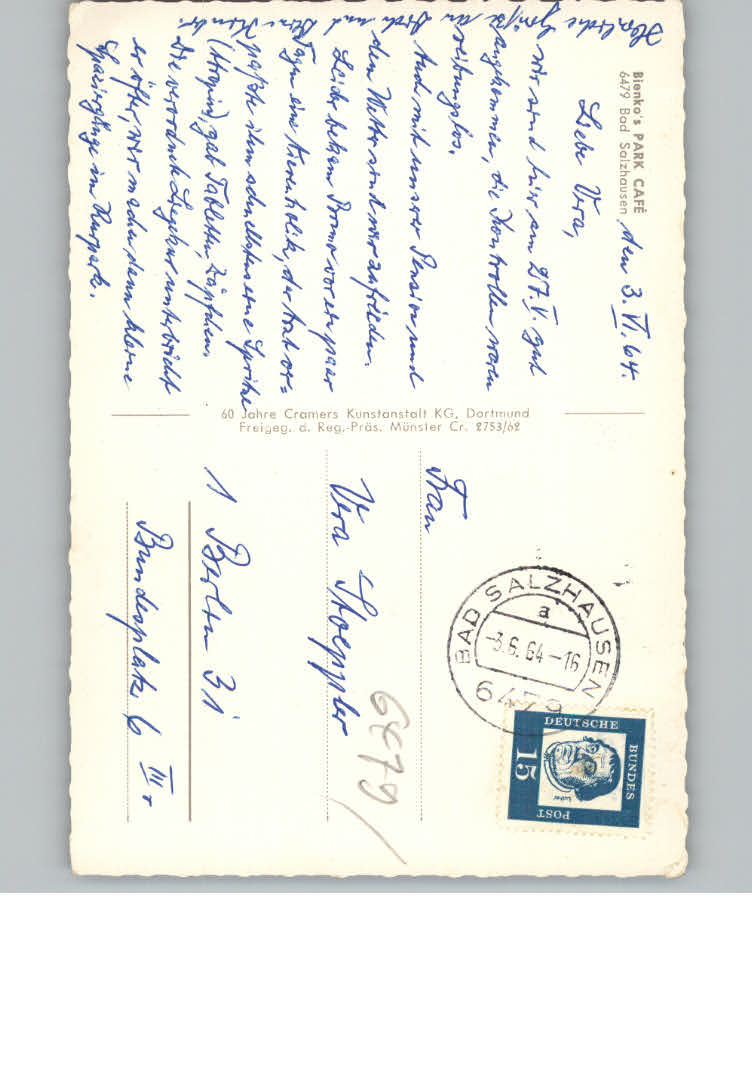 Bienko's PARK CAFÉ
6479 Bad Salzhausen
den 3. VI. 64.
Liebe Vera,
wir sind hier am 27.V. gut
angekommen, die Kontrollen waren
reibungslos.
Auch mit unserer Pension und
dem Wetter sind wir zufrieden.
Leider bekam Bruno vor ein paar
Tagen eine Nierenkolik, der Arzt ver-
paßte ihm schnellstens eine Spritze
(Atropin), gab Tabletten, Zäpfchen.
Die verordnete Liegekur unterbricht
er öfter, wir machen dann kleine
Spaziergänge im Kurpark.
Herzliche Grüße an
Dich und
Deine
60 Jahre Cramers Kunstanstalt KG, Dortmund
Freigeg. d. Reg.-Präs. Münster Cr. 2753/62
Frau
Vera Stoeppler
1 Berlin 31
Bundesplatz 6 III r
6479
BAD SALZHAUSEN
a
-3.6.64-16
6479
DEUTSCHE
BUNDES
POST
15
Luther